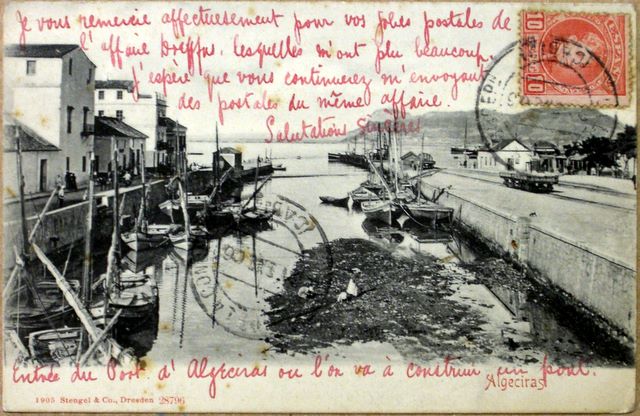 je vous remercie affectueusement pour vos jolies postales de
l'affaire Dreyfus, lesquelles m'ont plu beaucoup,
j'espère que vous continuerez m'envoyant
des postales du même affaire.
Salutations Sincères
10
10
Entrée du Port d'Algeciras ou l'on va à construir un pont.
Algeciras
1905 Stengel & Co., Dresden 28796